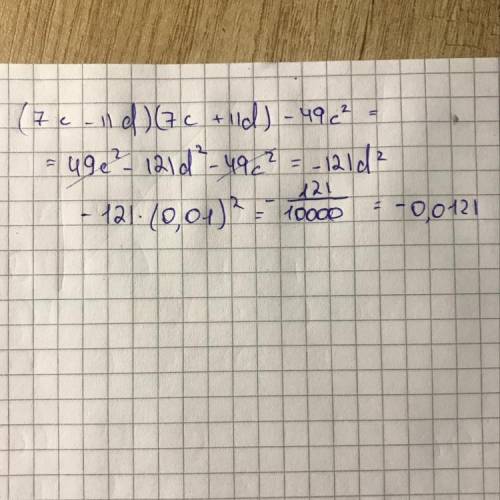 (7c - 11d)(7c + 11d) - 49c² =
= 49c² - 121d² - 49c² = -121d²
- 121 · (0,01)² = - 121/10000 = -0,0121